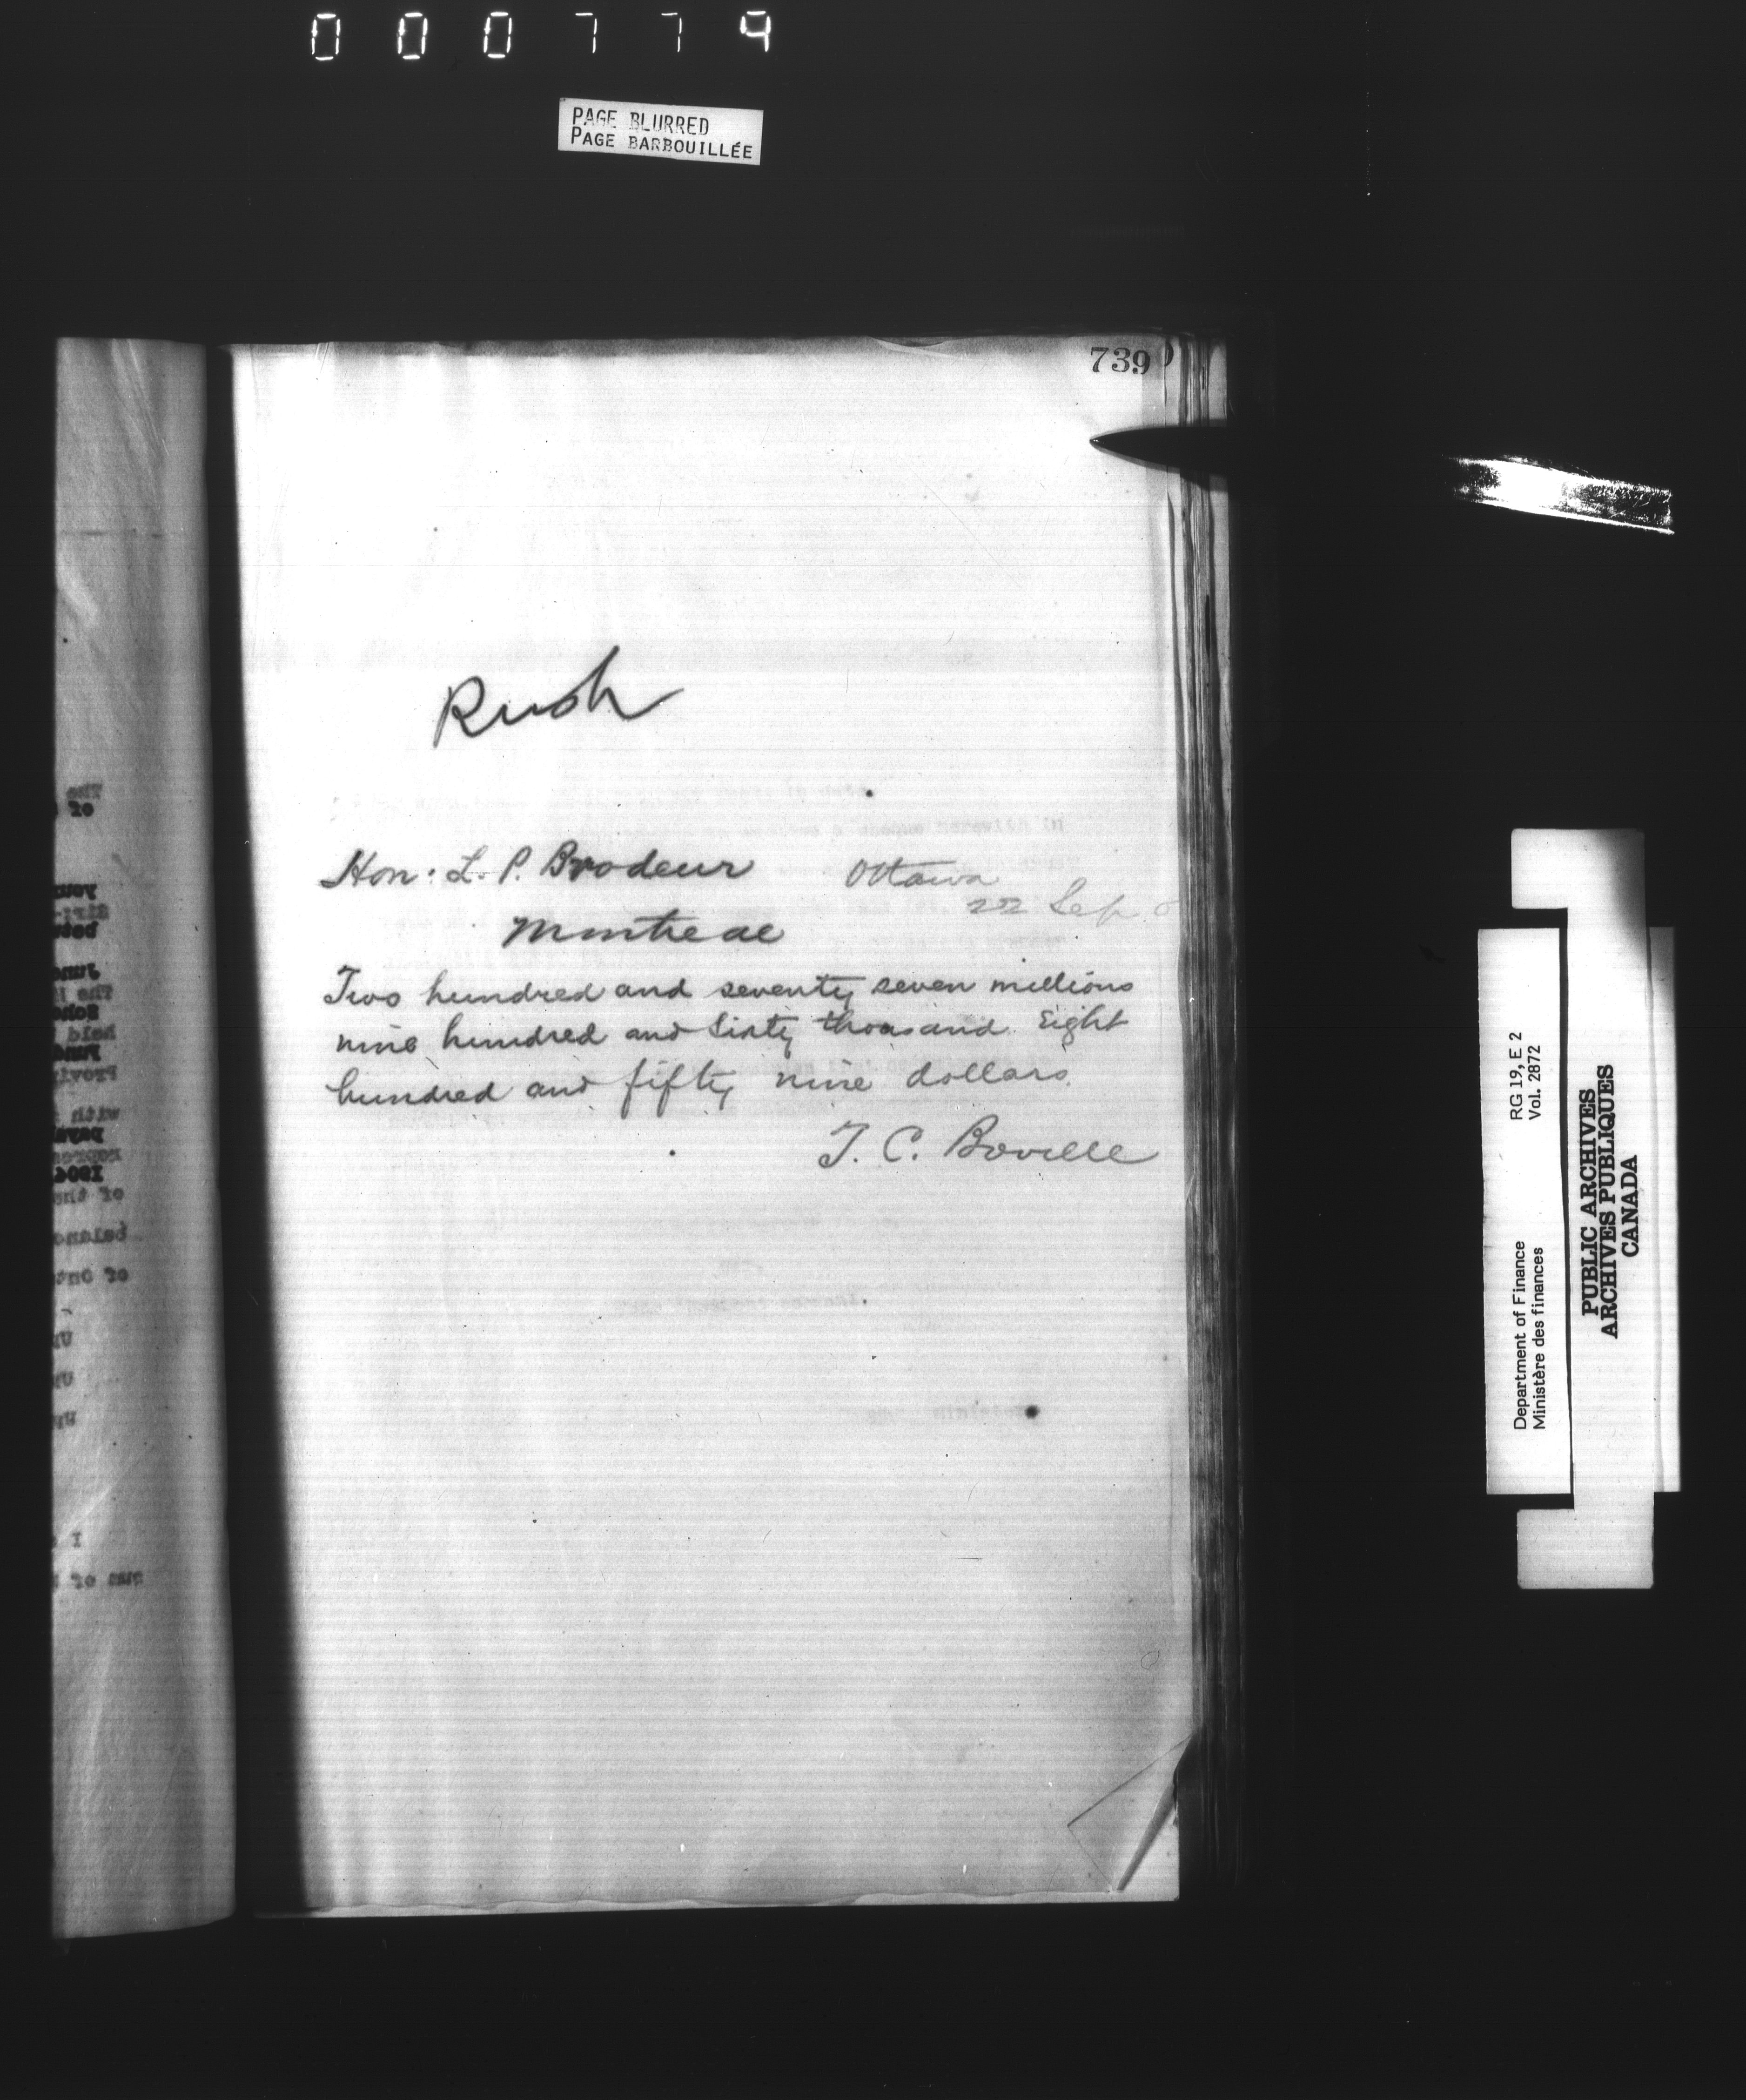 000774
PAGE BLURRED
PAGE BARBOUILLÉE
739
Rush
Hon: L. P. Brodeur
Ottawa
22 Sep
Montreal
Two hundred and seventy seven millions
nine hundred and sixty thousand Eight
hundred and fifty nine dollars.
T. C. Boville
Department of Finance
Ministère des finances
RG 19, E 2
Vol. 2872
PUBLIC ARCHIVES
ARCHIVES PUBLIQUES
CANADA